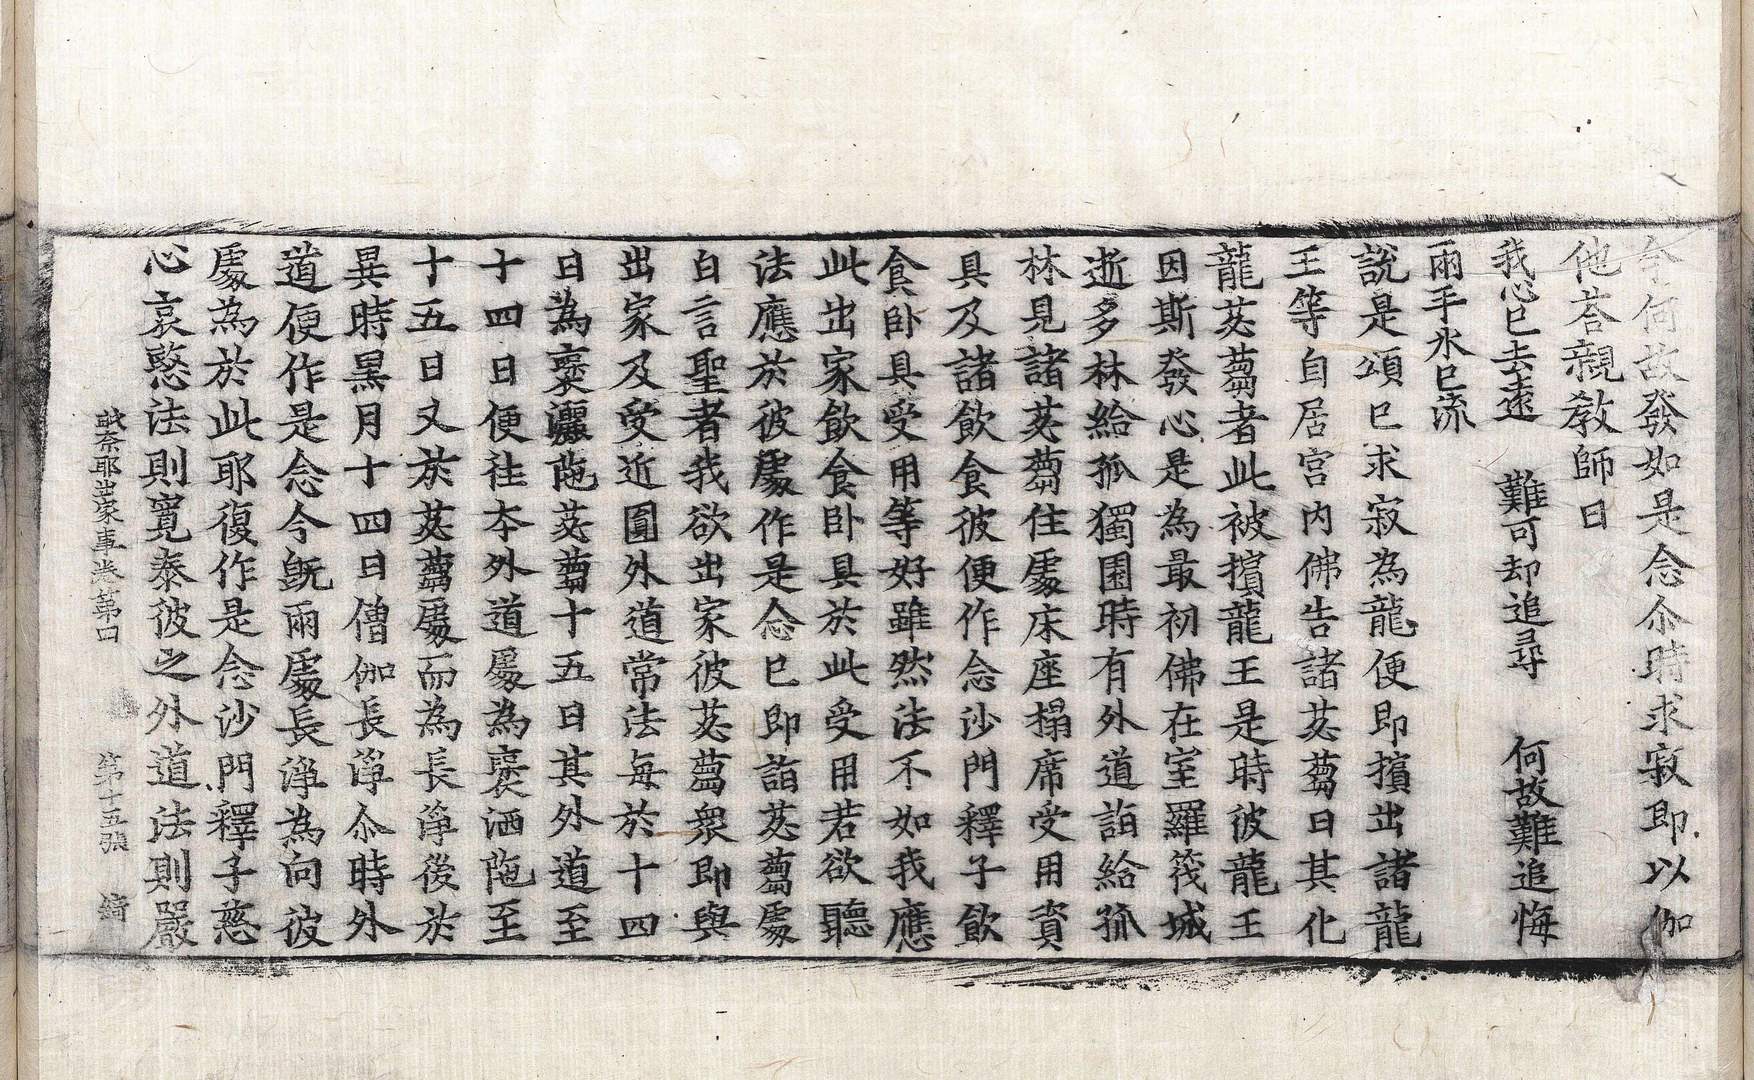 今何故發如是念尒時求寂即以伽
他荅親教師曰
我心已去遠　難可却追尋　何故難追悔
兩手水已流
說是頌已求寂為龍便即擯出諸龍
王等自居宮內佛告諸苾蒭曰其化
龍苾蒭者此被擯龍王是時彼龍王
因斯發心是為最初佛在室羅筏城
逝多林給孤獨園時有外道詣給孤
林見諸苾蒭住處床座榻席受用資
具及諸飲食彼便作念沙門釋子飲
食卧具受用等好雖然法不如我應
此出家飲食卧具於此受用若欲聽
法應於彼處作是念已即詣苾蒭處
白言聖者我欲出家彼苾蒭衆即與
出家及受近圓外道常法每於十四
日為褒灑陁苾蒭十五日其外道至
十四日便往夲外道處為褒洒陁至
十五日又於苾蒭處而為長淨後於
異時黑月十四日僧伽長淨尒時外
道便作是念今旣兩處長淨為向彼
處為於此耶復作是念沙門釋子慈
心哀愍法則寬泰彼之外道法則嚴
毗奈耶出家事卷第四　第十五張　鑄